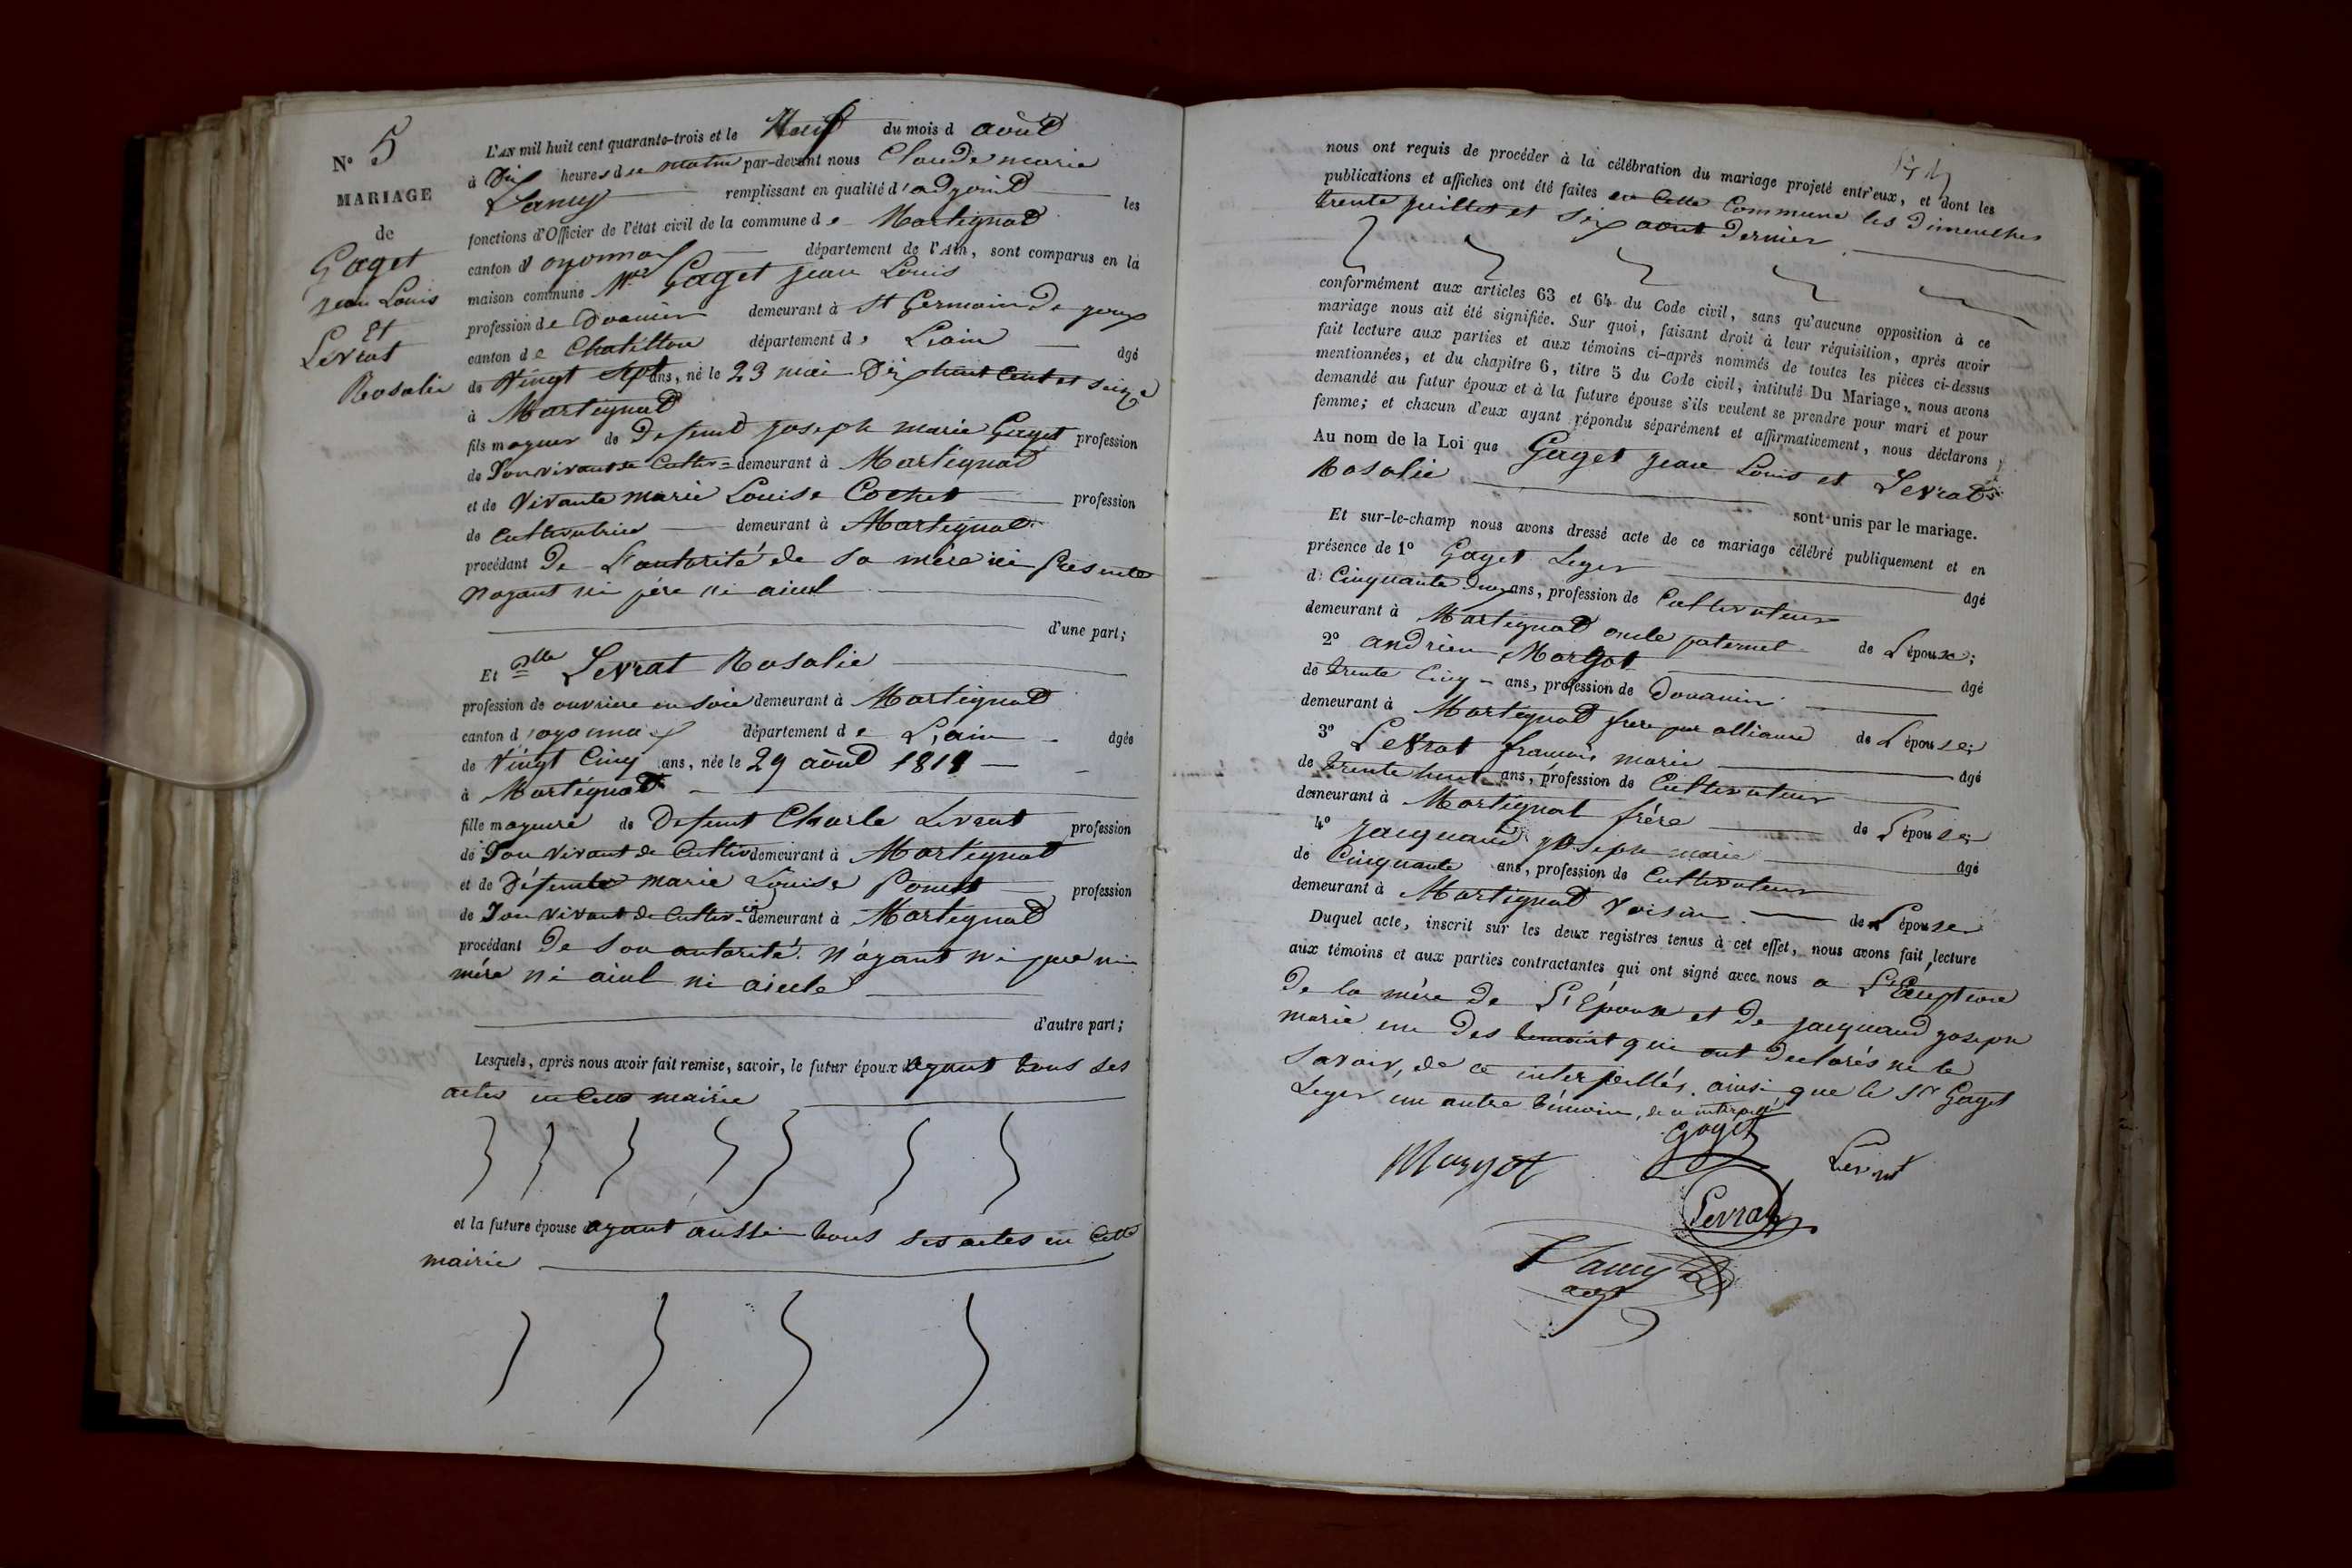 N° 5
MARIAGE
de
Gaget
jean Louis
Et
Levrat
Rosalie
L'AN mil huit cent quarante-trois et le Neuf du mois d août
à Dix heures d u matin par-devant nous Claude marie
remplissant en qualité d'adjoint les
fonctions d'Officier de l'état civil de la commune d e Martignat
canton d oyonnax département de l'Ain, sont comparus en la
maison commune Mr Gaget jean Louis
profession de Douanier demeurant à St Germain De joux
canton de Chatillon département de L'ain âgé
de Vingt Sept ans, né le 23 mai Dix huit Cent et seize
à Martignat
fils majeur de Defunt joseph marie Gaget profession
de Son vivant de Cultiv = demeurant à Martignat
et de Vivante marie Louise Cochet profession
de Cultivatrice demeurant à Martignat
procédant De L'autorité de sa mère ici Présente
n'ayant ni père ni aieul
d'une part;
Et Dlle Levrat Rosalie
profession de ouvrière en soie demeurant à Martignat
canton d'oyonnax département de L'ain âgée
de Vingt Cinq ans, née le 29 août 1818
à Martignat
fille majeure de Defunt Charle Levrat profession
de Son Vivant de Cultiv demeurant à Martignat
et de Défunte marie Louise profession
de Son Vivant de Cultiv ce demeurant à Martignat
procédant De Son autorité n'ayant ni père ni
mére ni aieul ni aieule
d'autre part;
Lesquels, après nous avoir fait remise, savoir, le futur époux ayant tous ses
actes en Cette mairie
et la future épouse ayant aussi tous ses actes en Cette
mairie
nous ont requis de procéder à la célébration du mariage projeté entr'eux, et dont les
publications et affiches ont été faites en Cette Commune les Dimenches
trente juillet et Six aout Dernier
conformément aux articles 63 et 64 du Code civil, sans qu'aucune opposition à ce
mariage nous ait été signifiée. Sur quoi, faisant droit à leur réquisition, après avoir
fait lecture aux parties et aux témoins ci-après nommés de toutes les pièces ci-dessus
mentionnées, et du chapitre 6, titre 5 du Code civil, intitulé Du Mariage, nous avons
demandé au futur époux et à la future épouse s'ils veulent se prendre pour mari et pour
femme; et chacun d'eux ayant répondu séparément et affirmativement, nous déclarons
Au nom de la Loi que Gaget jean Louis et Levrat
Rosalie sont unis par le mariage.
Et sur-le-champ nous avons dressé acte de ce mariage célébré publiquement et en
présence de 1° Gaget Leger âgé
de Cinquante Deux ans, profession de Cultivateur
demeurant à Martignat oncle paternel de L'époux;
2° andrien Margot âgé
de trente Cinq ans, profession de Douanier
demeurant à Martignat frère par alliance de L'épouse;
3° Levrat françois marie âgé
de trente huit ans, profession de Cultivateur
demeurant à Martignat frére de L'épouse;
4° jacquand joseph marie âgé
de Cinquante ans, profession de Cultivateur
demeurant à Martignat Voisin de L'épouse
Duquel acte, inscrit sur les deux registres tenus à cet effet, nous avons fait lecture
aux témoins et aux parties contractantes qui ont signé avec nous a L'Exception
De la mère de L'Epoux et De jacquand joseph
marie un Des temoint qui ont Declarés ne le
Savoir, de ce interpellés. ainsi que le Sr Gaget
Leger un autre témoin, de ce interpellé
Gaget
Margot
Levrat
Levrat
adjt